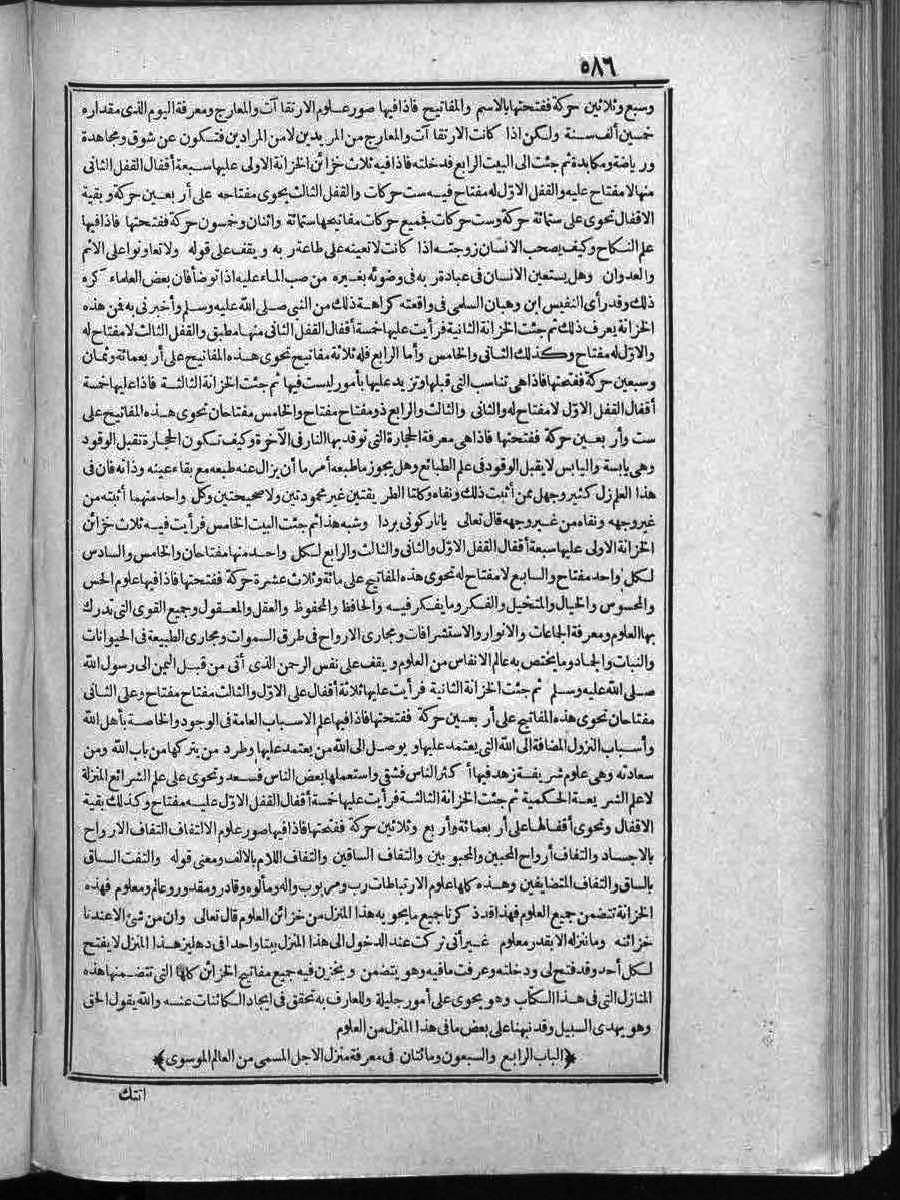 ٥٨٦
وسبع وثلاثين حركة ففتحتها بالاسم والمفاتيح فاذا فيها صور علوم الارتقا آت والمعارج ومعرفة اليوم الذى مقداره
خمسين ألف سنة ولكن اذا كانت الارتقا آت والمعارج من المريدين لا من المرادين فتكون عن شوق ومجاهدة
ورياضة ومكابدة ثم جئت الى البيت الرابع فدخلته فاذا فيه ثلاث خزائن الخزانة الاولى عليها سبعة أقفال القفل الثانى
منها لا مفتاح عليه والقفل الاوّل له مفتاح فيه ست حركات والقفل الثالث يحوى مفتاحه على أربعين حركة وبقية
الاقفال تحوى على ستمائة حركة وست حركات فجميع حركات مفاتيحها ستمائة واثنان وخمسون حركة ففتحتها فاذا فيها
علم النكاح وكيف يصحب الانسان زوجته اذا كانت لا تعينه على طاعة ربه ويقف على قوله ولا تعاونوا على الاثم
والعدوان وهل يستعين الانسان فى عبادة ربه فى وضوئه بغيره من صب الماء عليه اذا توضأ فان بعض العلماء كره
ذلك وقد رأى النفيس ابن وهبان السلمى فى واقعته كراهة ذلك من النبى صلى الله عليه وسلم وأخبرنى به فمن هذه
الخزانة يعرف ذلك ثم جئت الخزانة الثانية فرأيت عليها خمسة أقفال القفل الثانى منها مطبق والقفل الثالث لا مفتاح له
والاوّل له مفتاح وكذلك الثانى والخامس وأما الرابع فله ثلاثة مفاتيح تحوى هذه المفاتيح على أربعمائة وثمان
وسبعين حركة ففتحتها فاذا هى تناسب التى قبلها وتزيد عليها بأمور ليست فيها ثم جئت الخزانة الثالثة فاذا عليها خمسة
أقفال القفل الاوّل لا مفتاح له والثانى والثالث والرابع ذو مفتاح مفتاح والخامس مفتاحان تحوى هذه المفاتيح على
ست وأربعين حركة ففتحتها فاذا هى معرفة الحجارة التى توقد بها النار فى الآخرة وكيف تكون الحجارة تقبل الوقود
وهى يابسة واليابس لا يقبل الوقود فى علم الطبائع وهل يجوز ما طبعه أمر ما أن يزال عنه طبعه مع بقاء عينه وذاته فان فى
هذا العلم زل كثير وجهل ممن أثبت ذلك ونفاه وكلتا الطريقتين غير محمودتين ولا صحيحتين وكل واحد منهما أثبته من
غير وجهه ونفاه من غير وجهه قال تعالى يا نار كونى بردا وشبه هذا ثم جئت البيت الخامس فرأيت فيه ثلاث خزائن
الخزانة الاولى عليها سبعة أقفال القفل الاوّل والثانى والثالث والرابع لكل واحد منها مفتاحان والخامس والسادس
لكل واحد مفتاح والسابع لا مفتاح له تحوى هذه المفاتيح على مائة وثلاث عشرة حركة ففتحتها فاذا فيها علوم الحس
والمحسوس والخيال والمتخيل والفكر وما يفكر فيه والحافظ والمحفوظ والعقل والمعقول وجميع القوى التى تدرك
بها العلوم ومعرفة الجاعات والانوار والاستشرافات ومجارى الارواح فى طرق السموات ومجارى الطبيعة فى الحيوانات
والنبات والجماد وما يختص به عالم الانفاس من العلوم ويقف على نفس الرحمن الذى أتى من قبل اليمن الى رسول الله
صلى الله عليه وسلم ثم جئت الخزانة الثانية فرأيت عليها ثلاثة أقفال على الاوّل والثالث مفتاح مفتاح وعلى الثانى
مفتاحان تحوى هذه المفاتيح على أربعين حركة ففتحتها فاذا فيها علم الاسباب العامة فى الوجود والخاصة بأهل الله
وأسباب النزول المضافة الى الله التى يعتمد عليها ويوصل الى الله من يعتمد عليها وطرد من يتركها من باب الله ومن
سعادته وهى علوم شريفة زهد فيها أكثر الناس فشقى واستعملها بعض الناس فسعد وتحوى على علم الشرائع المنزلة
لا علم الشريعة الحكمية ثم جئت الخزانة الثالثة فرأيت عليها خمسة أقفال القفل الاوّل عليه مفتاح وكذلك بقية
الاقفال وتحوى أقفالها على أربعمائة وأربع وثلاثين حركة ففتحتها فاذا فيها صور علوم الالتفاف التفاف الارواح
بالاجساد والتفاف أرواح المحبين والمحبوبين والتفاف الساقين والتفاف اللام بالالف ومعنى قوله والتفت الساق
بالساق والتفاف المتضايفين وهذه كلها علوم الارتباطات رب ومربوب واله ومألوه وقادر ومقدور وعالم ومعلوم فهذه
الخزانة تتضمن جميع العلوم فهذا قد ذكرنا جميع ما يحويه هذا المنزل من خزائن العلوم قال تعالى وان من شئ الا عندنا
خزائنه وما ننزله الا بقدر معلوم غير أنى تركت عند الدخول الى هذا المنزل بيتا واحدا فى دهليز هذا المنزل لا يفتح
لكل أحد وقد فتح لى ودخلته وعرفت ما فيه وهو يتضمن ويختزن فيه جميع مفاتيح الخزائن كلها التى تتضمنها هذه
المنازل التى فى هذا الكتاب وهو يحوى على أمور جليلة وللعارف به تحقق فى ايجاد الكائنات عنه والله يقول الحق
وهو يهدى السبيل وقد نبهنا على بعض ما فى هذا المنزل من العلوم
﴿الباب الرابع والسبعون ومائتان فى معرفة منزل الاجل المسمى من العالم الموسوى﴾